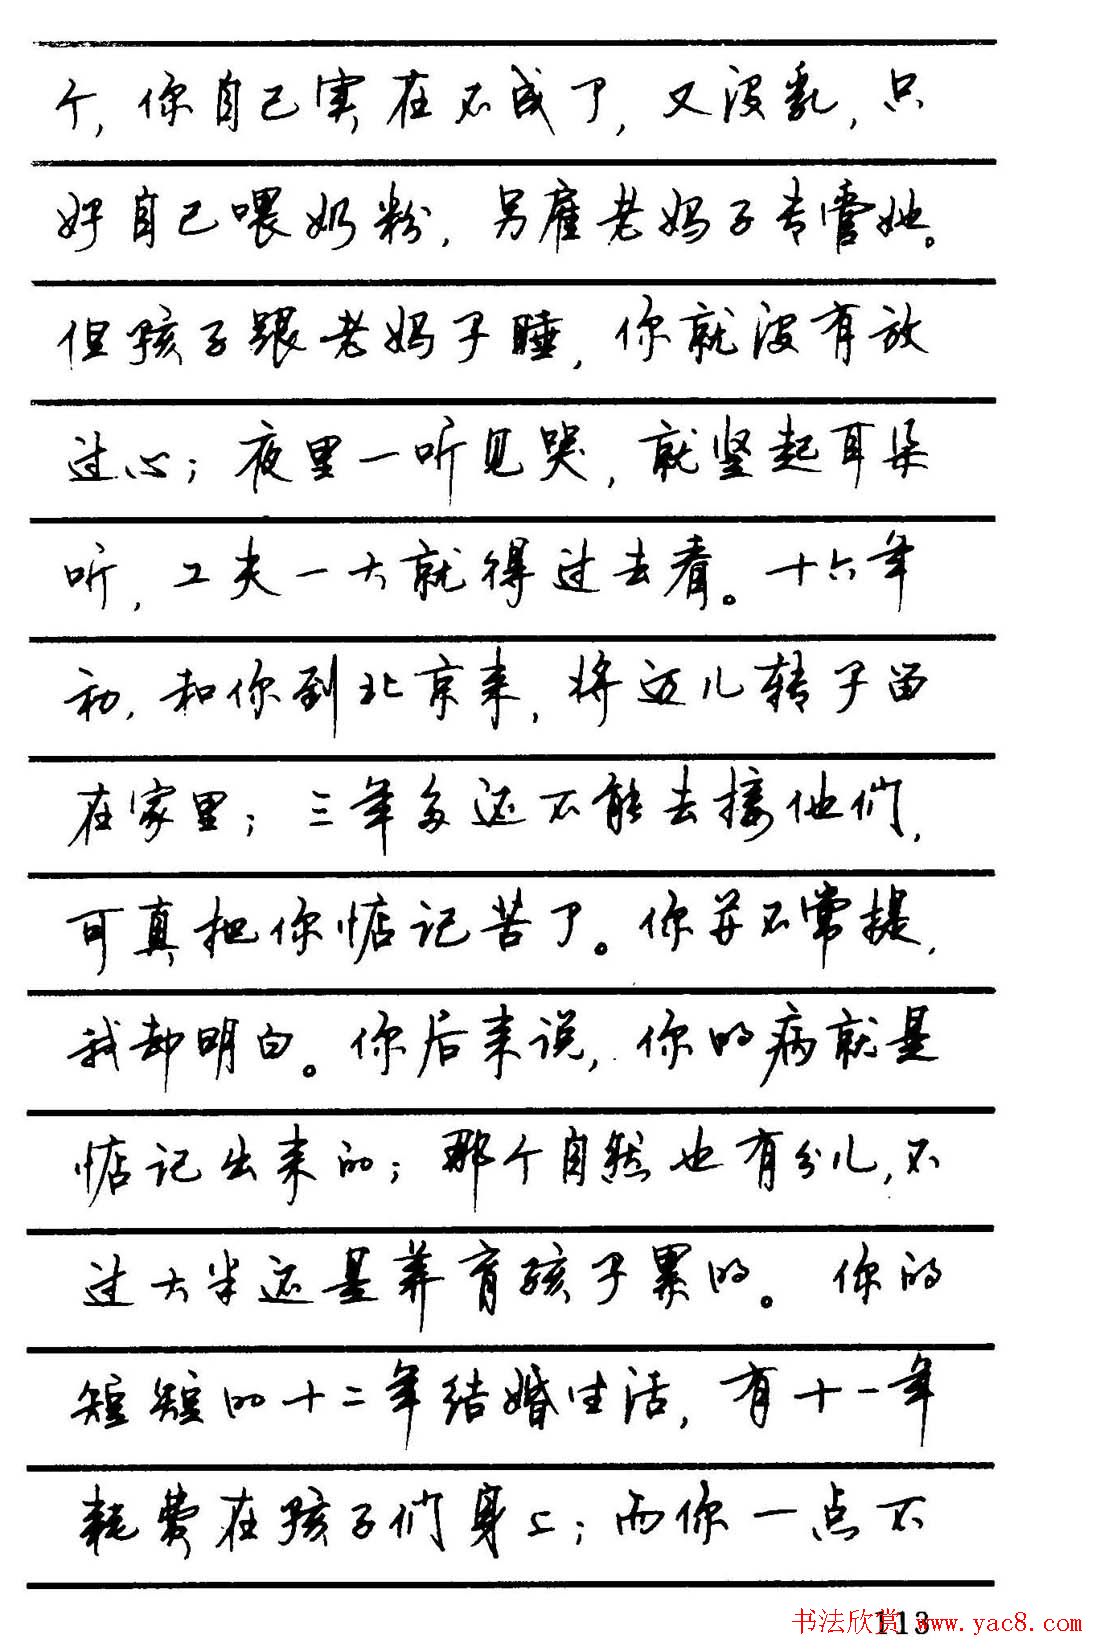 个，你自己实在不成了，又没乳，只
好自己喂奶粉，另雇老妈子专管她。
但孩子跟老妈子睡，你就没有放
过心；夜里一听见哭，就竖起耳朵
听，工夫一大就得过去看。十六年
初，和你到北京来，将迈儿转子留
在家里；三年多还不能去接他们，
可真把你惦记苦了。你并不常提，
我却明白。你后来说，你的病就是
惦记出来的；那个自然也有分儿，不
过大半还是养育孩子累的。你的
短短的十二年结婚生活，有十一年
耗费在孩子们身上；而你一点不
113
书法欣赏 www.yac8.com